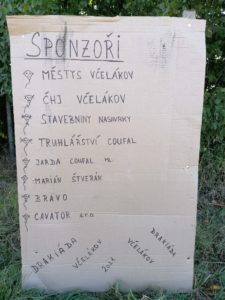 SPONZOŘI
MĚSTYS VČELÁKOV
ČHJ VČELÁKOV
STAVEBNINY NASAVRKY
TRUHLÁŘSTVÍ COUFAL
JARDA COUFAL ML.
MARIÁN ŠTVERÁK
BRAVO
CAVATOR s.r.o.
DRAKIÁDA
VČELÁKOV
DRAKIÁDA
VČELÁKOV